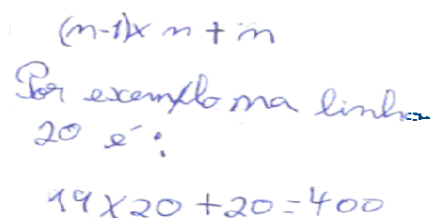 (n-1)x n + n
Por exemplo na linha
20 é:
19 x 20 + 20 = 400